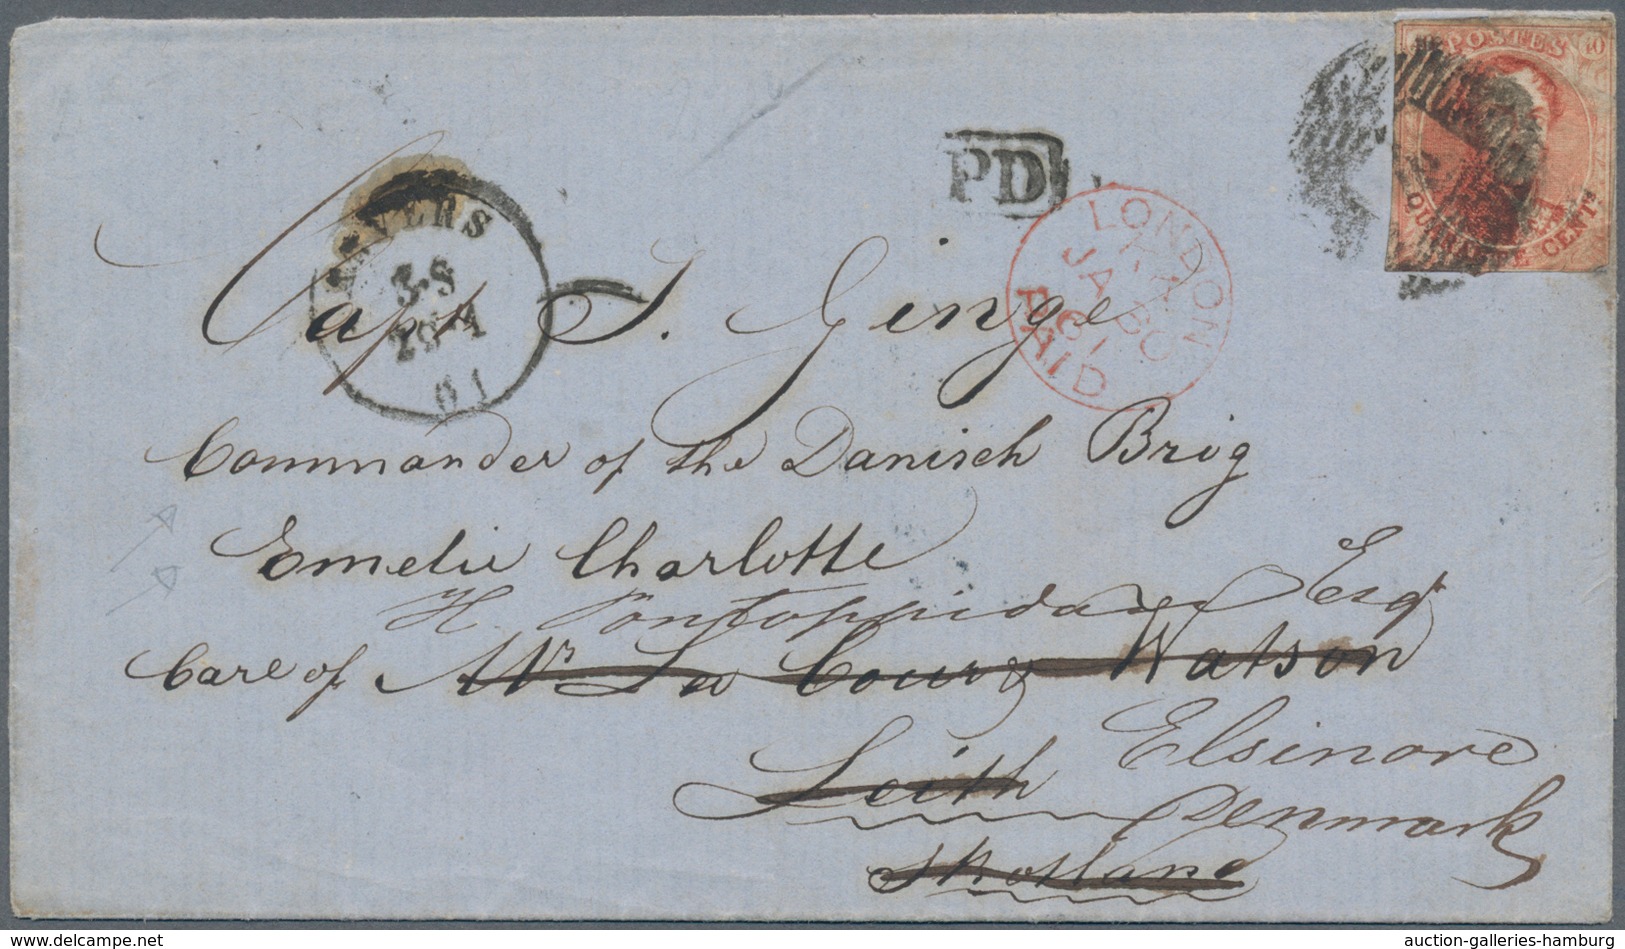 POSTES
40
QUARANTE CENTS
PD
ANVERS
3·S
29·1
61
LONDON
JA 30
61
PAID
Capt J. Ginge
Commander of the Danisch Brig
Emelie Charlotte
H. Pontoppidan Esqr
Care of Mr La Cour & Watson
Leith Elsinore
Denmark
Skotland
auction-galleries-hamburg